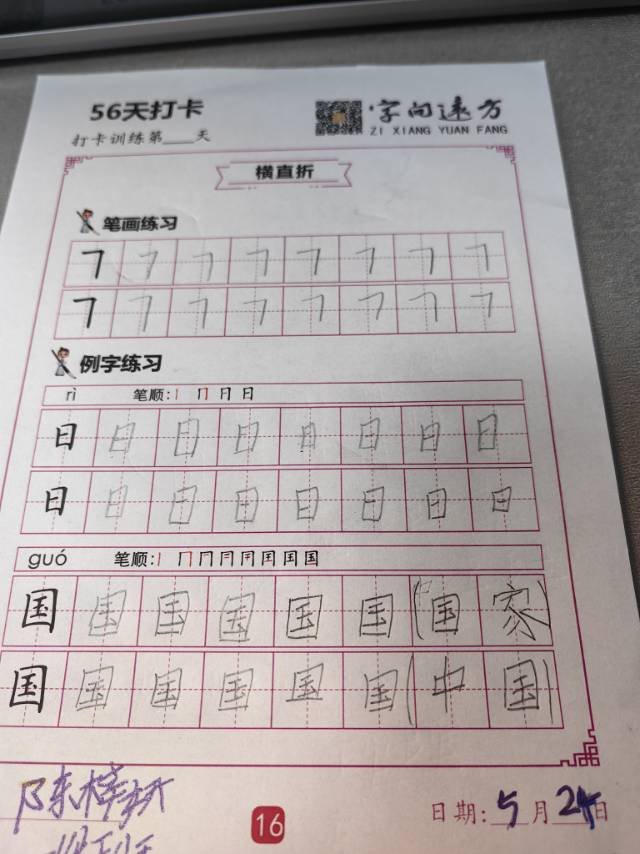 56天打卡
字向远方
打卡训练第___天
ZI XIANG YUAN FANG
横直折
笔画练习
㇕ ㇕ ㇕ ㇕ ㇕ ㇕ ㇕ ㇕
㇕ ㇕ ㇕ ㇕ ㇕ ㇕ ㇕ ㇕
例字练习
rì 笔顺: 丨 冂 日 日
日 日 日 日 日 日 日 日
日 日 日 日 日 日 日 日
guó 笔顺: 丨 冂 国
国 国 国 国 国 国 (国 家)
国 国 国 国 国 国 (中 国)
日期: 5月24日
16